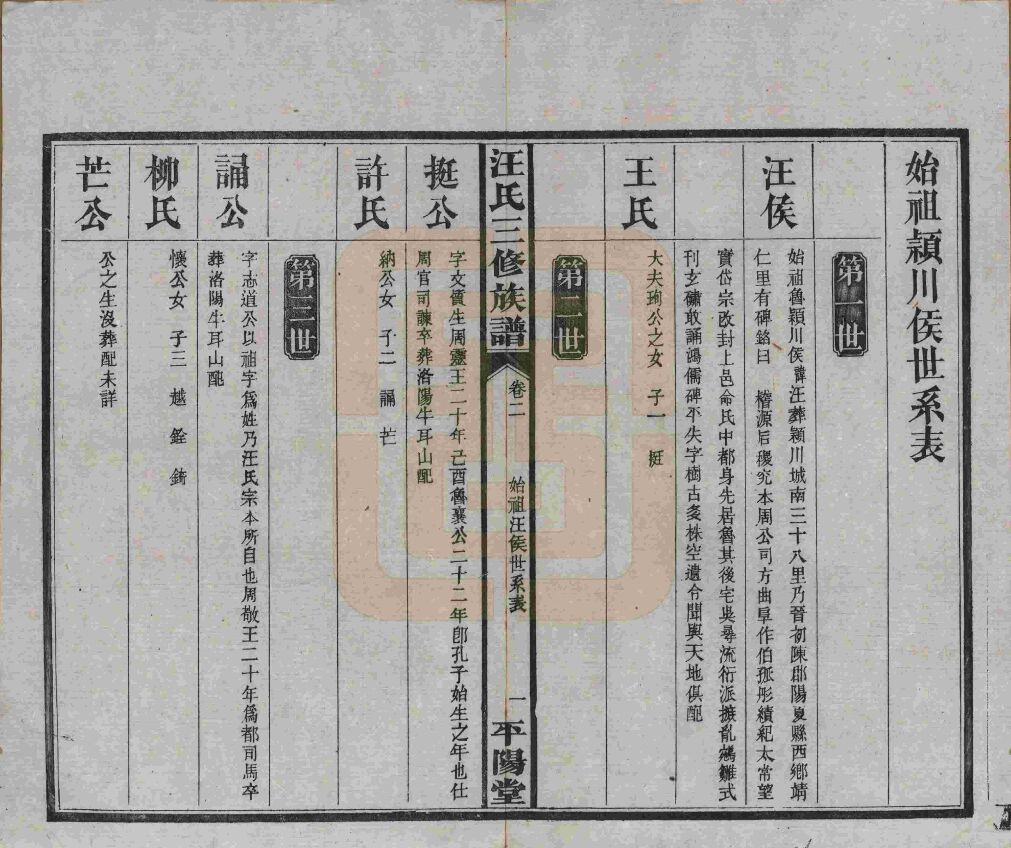 始祖潁川侯世系表
第一世
汪侯
始祖魯潁川侯諱汪葬潁川城南三十八里乃晉初陳郡陽夏縣西鄉靖
仁里有碑銘曰 稽源后稷究本周公司方曲阜作伯孤彤績紀太常望
實岱宗改封上邑命氏中都身先居魯其後宅吳尋流衍派據亂 雛式
刊玄 敢誦鴻儒碑不失字樹古多株空遺令聞與天地俱配
王氏
大夫珣公之女 子一 挺
第二世
汪氏三修族譜
卷二
始祖汪侯世系表
一
平陽堂
挺公
字文質生周靈王二十年己酉魯襄公二十二年卽孔子始生之年也仕
周官司諫卒葬洛陽牛耳山配
許氏
納公女 子二 誦 芒
第三世
誦公
字志道公以祖字爲姓乃汪氏宗本所自也周敬王二十年爲都司馬卒
葬洛陽牛耳山配
柳氏
懷公女 子三 越 銓 錡
芒公
公之生沒葬配未詳